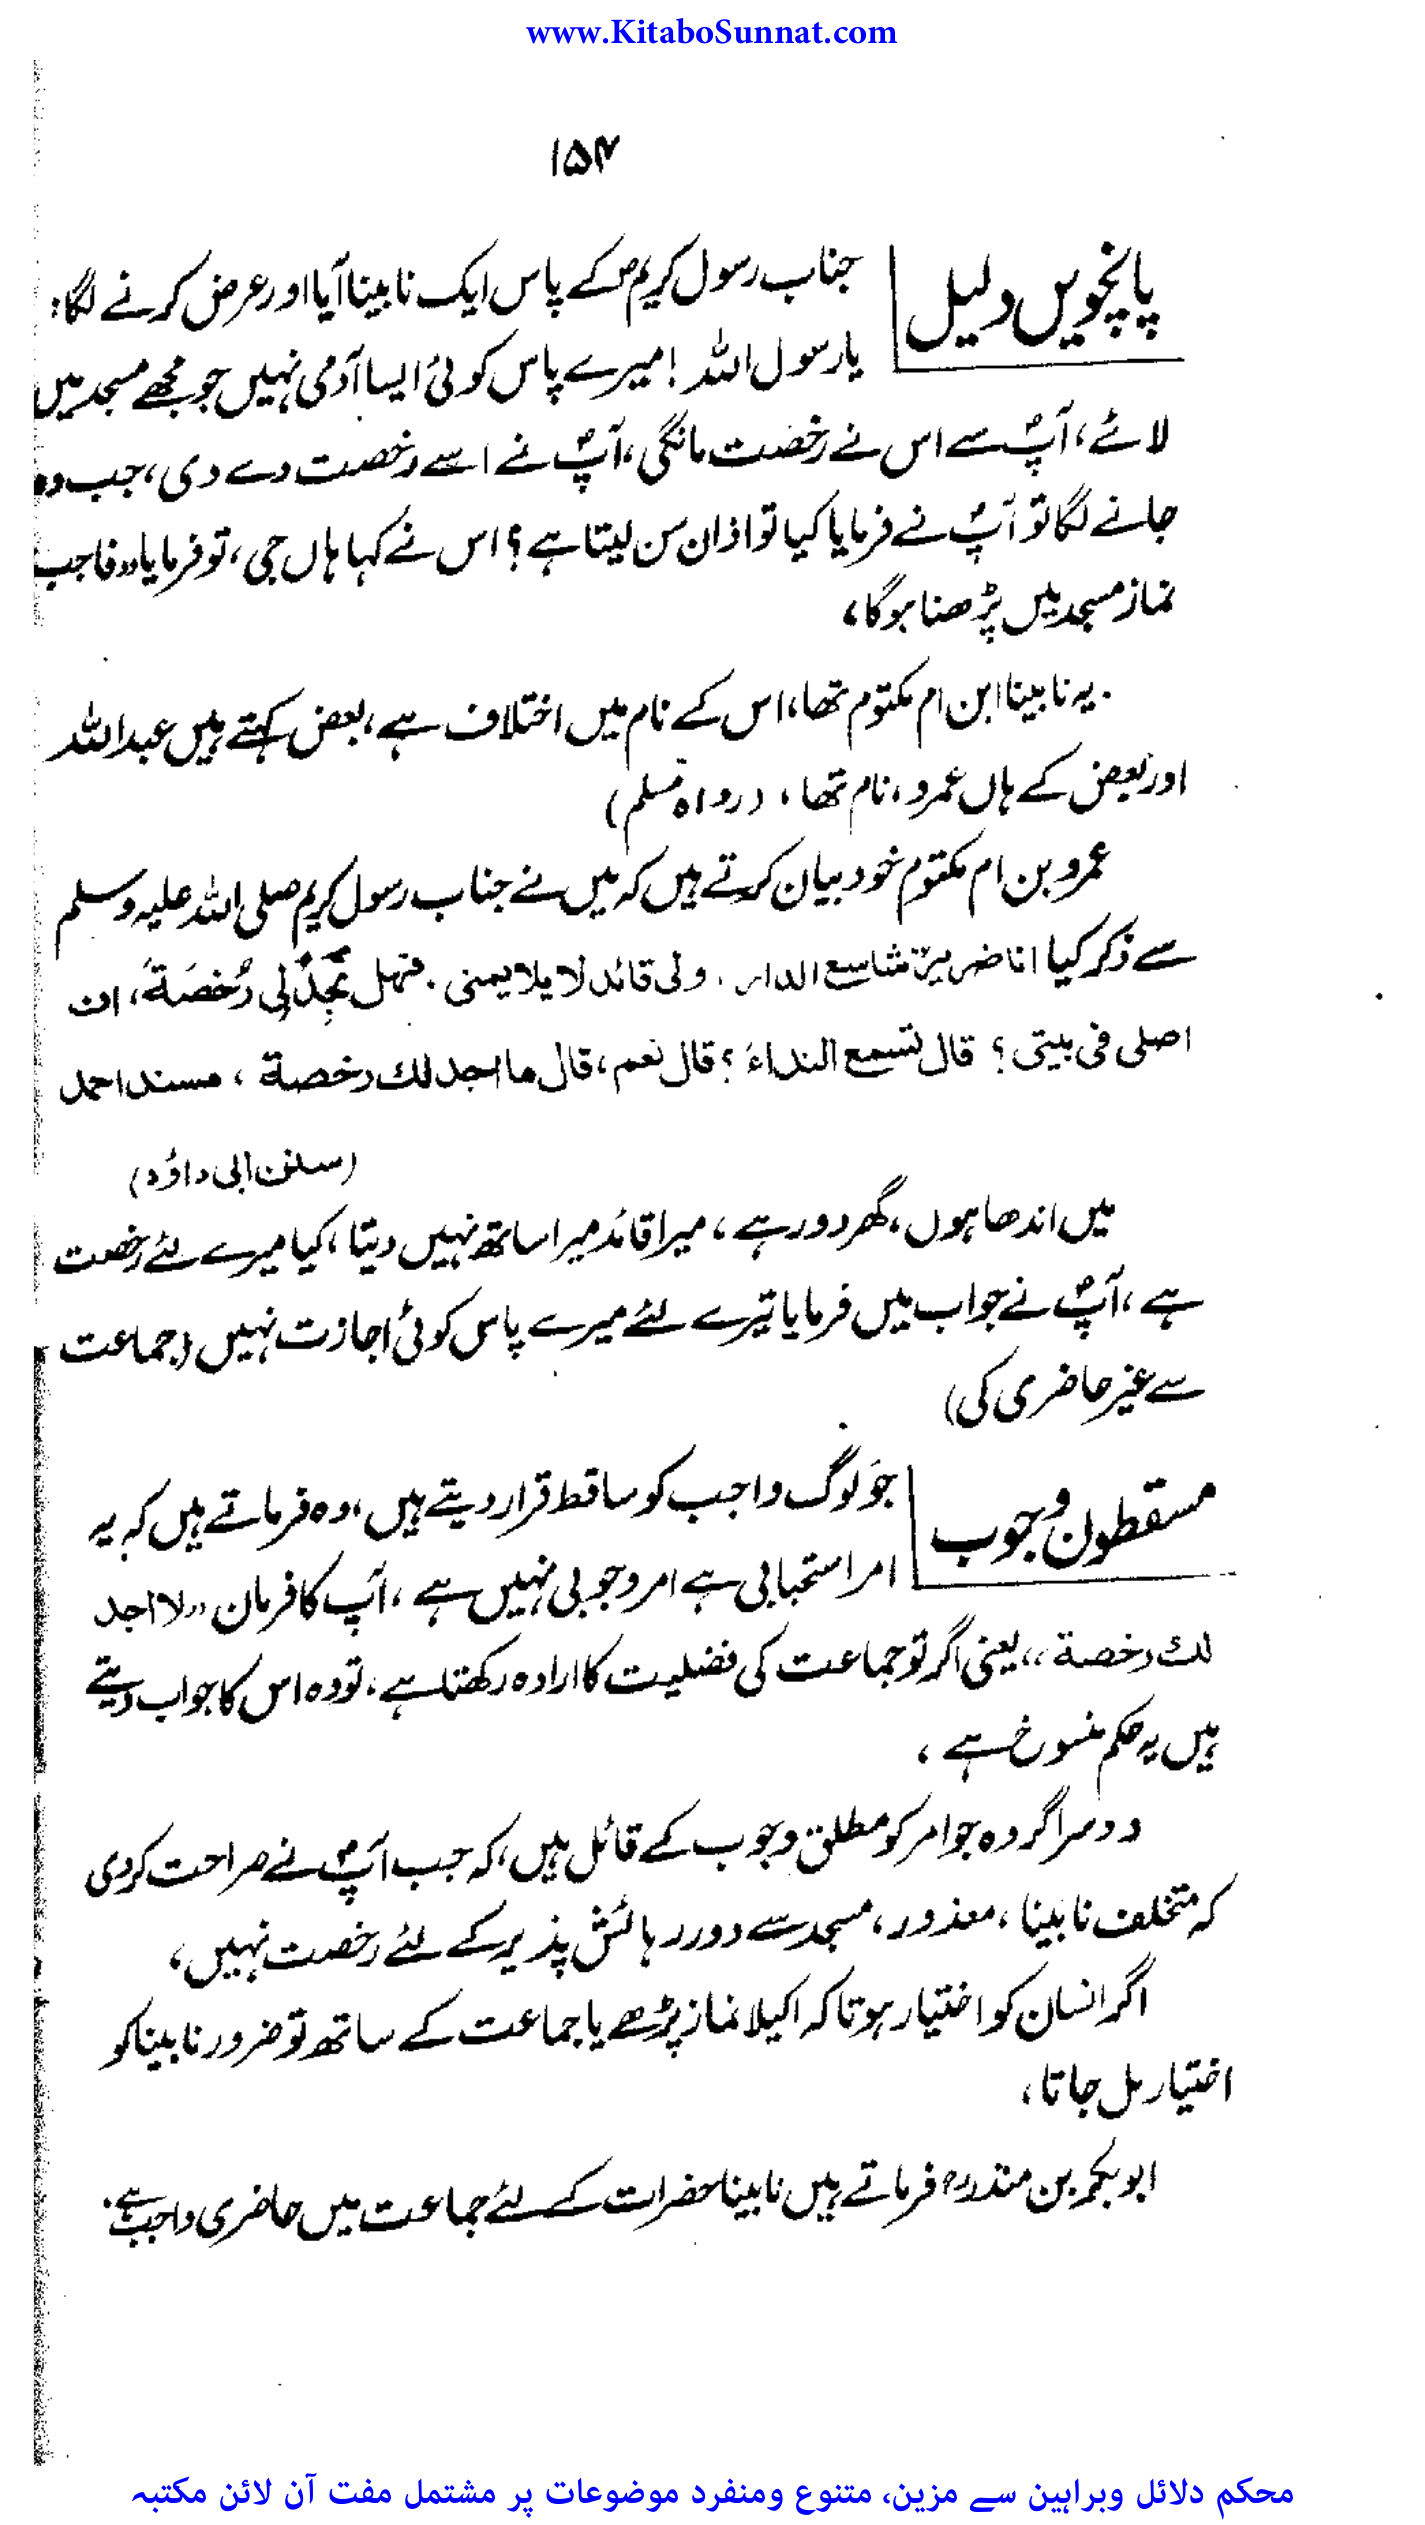 www.KitaboSunnat.com
۱۵۴
پانچویں دلیل
جناب رسول کریمؐ کے پاس ایک نابینا آیا اور عرض کرنے لگا:
یا رسول اللہ! میرے پاس کوئی ایسا آدمی نہیں جو مجھے مسجد میں
لائے، آپؐ سے اس نے رخصت مانگی، آپؐ نے اسے رخصت دے دی، جب وہ
جانے لگا تو آپؐ نے فرمایا کیا تو اذان سن لیتا ہے؟ اس نے کہا ہاں جی، تو فرمایا "فاجب
نماز مسجد میں پڑھنا ہوگا،
یہ نابینا ابن ام مکتوم تھا، اس کے نام میں اختلاف ہے، بعض کہتے ہیں عبداللہ
اور بعض کے ہاں عمرو، نام تھا، (رواہ مسلم)
عمرو بن ام مکتوم خود بیان کرتے ہیں کہ میں نے جناب رسول کریم صلی اللہ علیہ وسلم
سے ذکر کیا انا ضریر شاسع الدار. ولی قائد لا یلایمنی. فهل تجد لی رُخصَةً، ان
اصلی فی بیتی؟ قال تسمع النداء؟ قال نعم، قال ما اجد لك رخصة، مسند احمد
(سنن ابی داؤد)
میں اندھا ہوں، گھر دور ہے، میرا قائد میرا ساتھ نہیں دیتا، کیا میرے لئے رخصت
ہے، آپؐ نے جواب میں فرمایا تیرے لئے میرے پاس کوئی اجازت نہیں (جماعت
سے غیر حاضری کی)
مسقطون وجوب
جو لوگ واجب کو ساقط قرار دیتے ہیں، وہ فرماتے ہیں کہ یہ
امر استحبابی ہے امر وجوبی نہیں ہے، آپ کا فرمان "لا اجد
لك رخصة"، یعنی اگر تو جماعت کی فضلیت کا ارادہ رکھتا ہے، تو وہ اس کا جواب دیتے
ہیں یہ حکم منسوخ ہے،
دوسرا گروہ جو امر کو مطلق وجوب کے قائل ہیں، کہ جب آپؐ نے صراحت کردی
کہ متخلف نابینا، معذور، مسجد سے دور رہائش پذیر کے لئے رخصت نہیں،
اگر انسان کو اختیار ہوتا کہ اکیلا نماز پڑھے یا جماعت کے ساتھ تو ضرور نابینا کو
اختیار مل جاتا،
ابو بکر بن منذرؒ فرماتے ہیں نابینا حضرات کے لئے جماعت میں حاضری واجب ہے.
محکم دلائل وبراہین سے مزین، متنوع ومنفرد موضوعات پر مشتمل مفت آن لائن مکتبہ